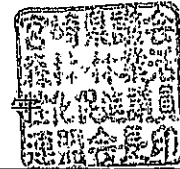 県議会
林林業活
性化促進議員
連盟会長印